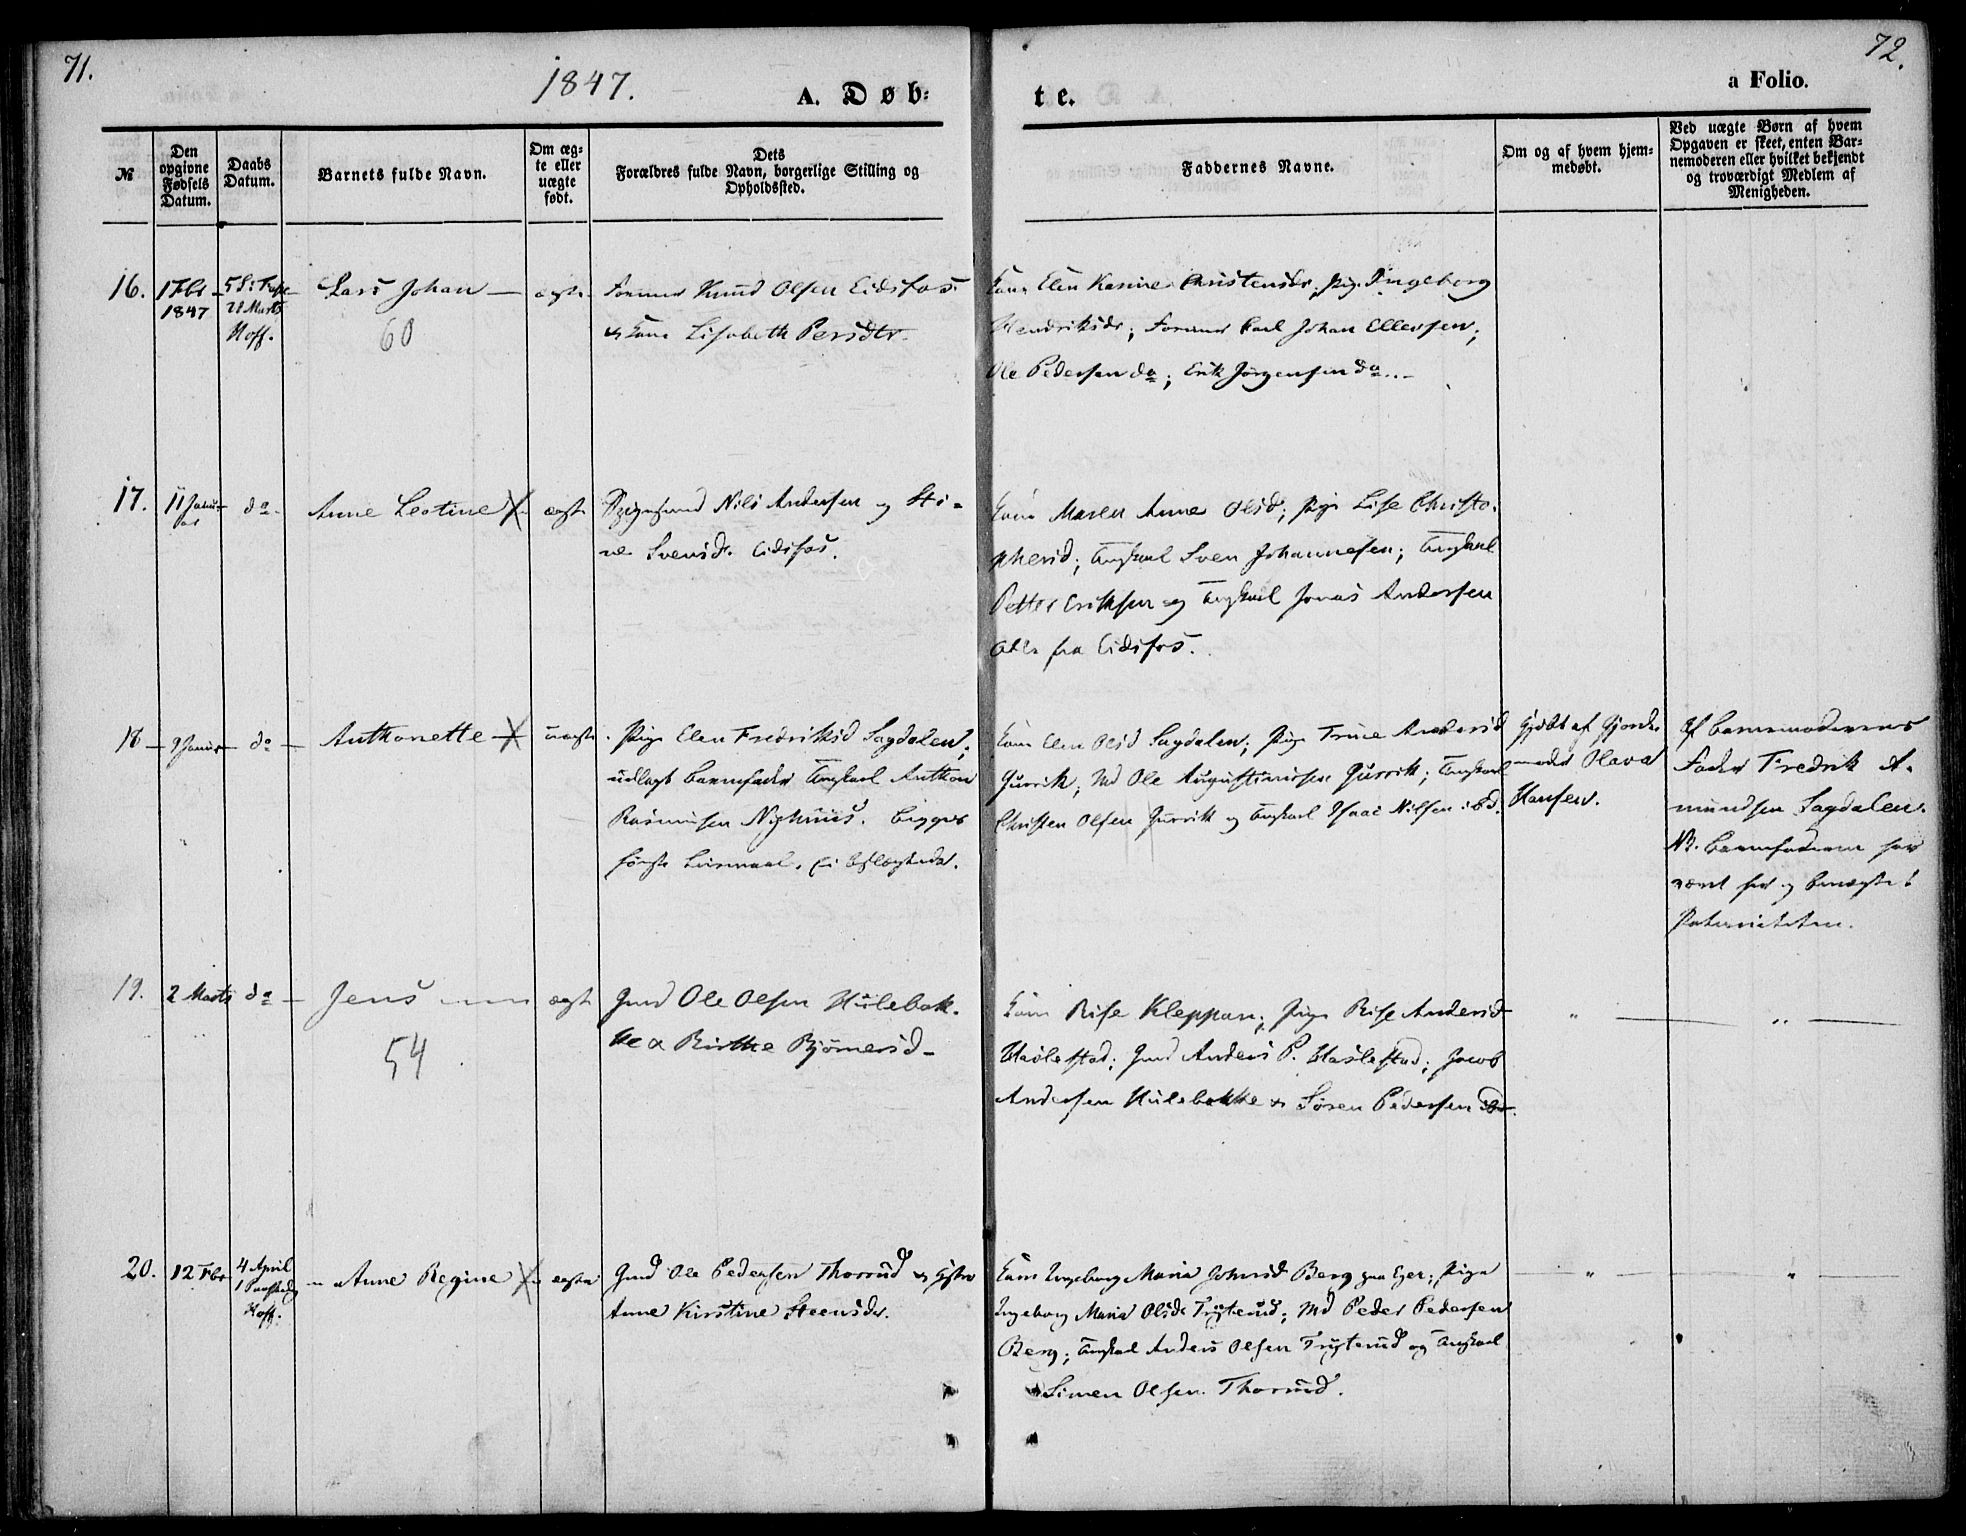 71.
1847.
A. Døb-
te.
a Folio.
72.
№
Den opgivne Fødsels Datum.
Daabs Datum.
Barnets fulde Navn.
Om ægte eller uægte født.
Dets Forældres fulde Navn, borgerlige Stilling og Opholdssted.
Faddernes Navne.
Om og af hvem hjemmedøbt.
Ved uægte Børn af hvem Opgaven er skeet, enten Barnemoderen eller hvilket bekjendt og troværdigt Medlem af Menigheden.
16.
1 Fbr
1847
28 Marts
Hoff.
Lars Johan
60
ægte
Knud Olsen Eidsfos
Lisabeth Persdtr.
Kone Elen Karine Christensdr. Pige Ingeborg
Hendriksdr; Former Carl Johan Ellersen;
Ole Pedersen do; Erik Jørgensen do.
17.
11 Januar
do
Anne Leotine
ægte
Nils Andersen og Sti-
ne Svensd. Eidsfos.
Kone Maren Anne Olsd; Pige Lise Christo-
phersd; Ungkarl Sven Johannesen; Ungkarl
Petter Eriksen og Ungkarl Jonas Andersen
Alle fra Eidsfos.
18
9 Januar
do
Anthonette
uægte
Pige Elen Fredriksd Sagdalen;
udlagt Barnefader Ungkarl Anthon
Rasmusen Nyhuus. Begges
første Leiermaal. Ei beslægtede.
Kone Elen Olsd Sagdalen; Pige Trine Andersd
Gurrik; Md Ole Augustinusen Gurrik; Ungkarl
Christen Olsen Gurrik og Ungkarl Isaac Nilsen ibd.
Hjdøbt af Gjorde-
moder Olava
Hansen.
Af Barnemoderens
Fader Fredrik A-
mundsen Sagdalen.
NB. Barnefaderen har
været her og benægtet
Paterniteten.
19.
2 Marts
do
Jens
54
ægte
Gmd Ole Olsen Hulebak-
ke & Birthe Bjørnersd
Kone Rise Kleppan; Pige Rise Andersd
Haslestad; Gmd Anders P. Haslestad; Jacob
Andersen Hulebakke & Søren Pedersen
20.
12 Fbr
4 April
Hoff.
Anne Regine
ægte
Gmd Ole Pedersen Thorrud & Hstru
Anne Kirstine Steensdr.
Kone Ingeborg Maria Johnsd Berg paa Eger; Pige
Ingeborg Maria Olsdr Tryterud; Md Peder Pedersen
Berg; Ungkarl Anders Olsen Tryterud og Ungkarl
Simen Olsen Thorrud.